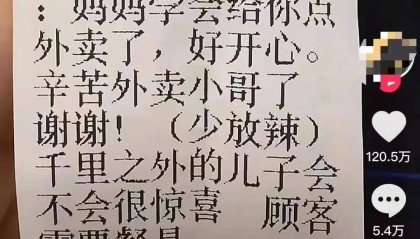 ：妈妈学会给你点
外卖了，好开心。
辛苦外卖小哥了
谢谢！（少放辣）
千里之外的儿子会
不会很惊喜 顾客
需要餐具
120.5万
5.4万